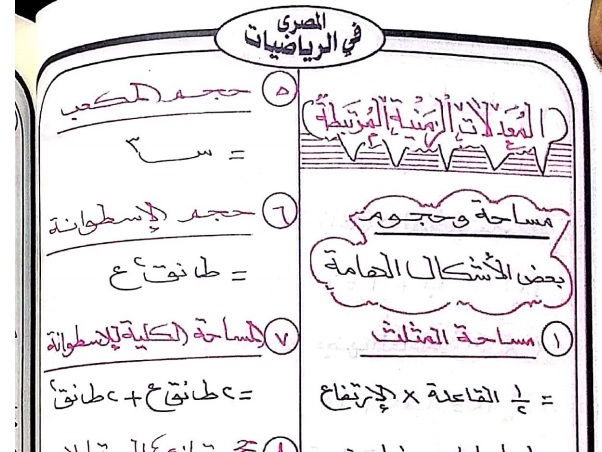 المصرى
في الرياضيات
المعدلات الزمنية المرتبطة
مساحة وحجوم
بعض الأشكال الهامة
١ مساحة المثلث
= ١/٢ القاعدة × الإرتفاع
٥ حجم المكعب
= س٣
٦ حجم الإسطوانة
= ط نق٢ ع
٧ المساحة الكلية للاسطوانة
= ٢ ط نق ع + ٢ ط نق٢
٨